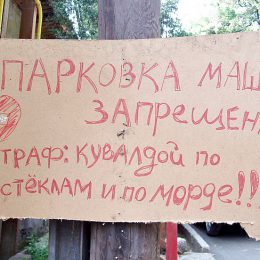 ПАРКОВКА МАШ
ЗАПРЕЩЕН
ТРАФ: КУВАЛДОЙ ПО
СТЁКЛАМ И ПО МОРДЕ!!